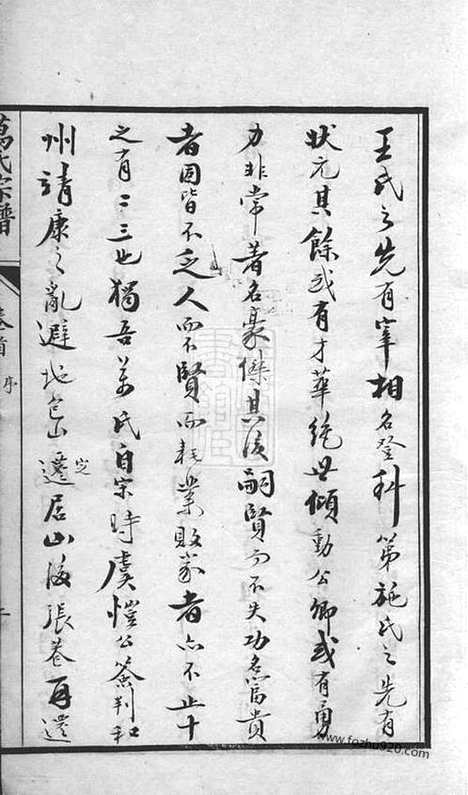 王氏之先有宰相名登科第施氏之先有
狀元其餘或有才華絕世傾動公卿或有勇
力非常著名豪傑其後嗣賢而不失功名富貴
者固皆不乏人而不賢而耗業敗家者亦不止十
之有二三也獨吾萬氏自宋時虞愷公簽判和
州靖康之亂避地包山定遷居山後張巷再遷
萬氏宗譜
卷首 序
www.fozhu920.com